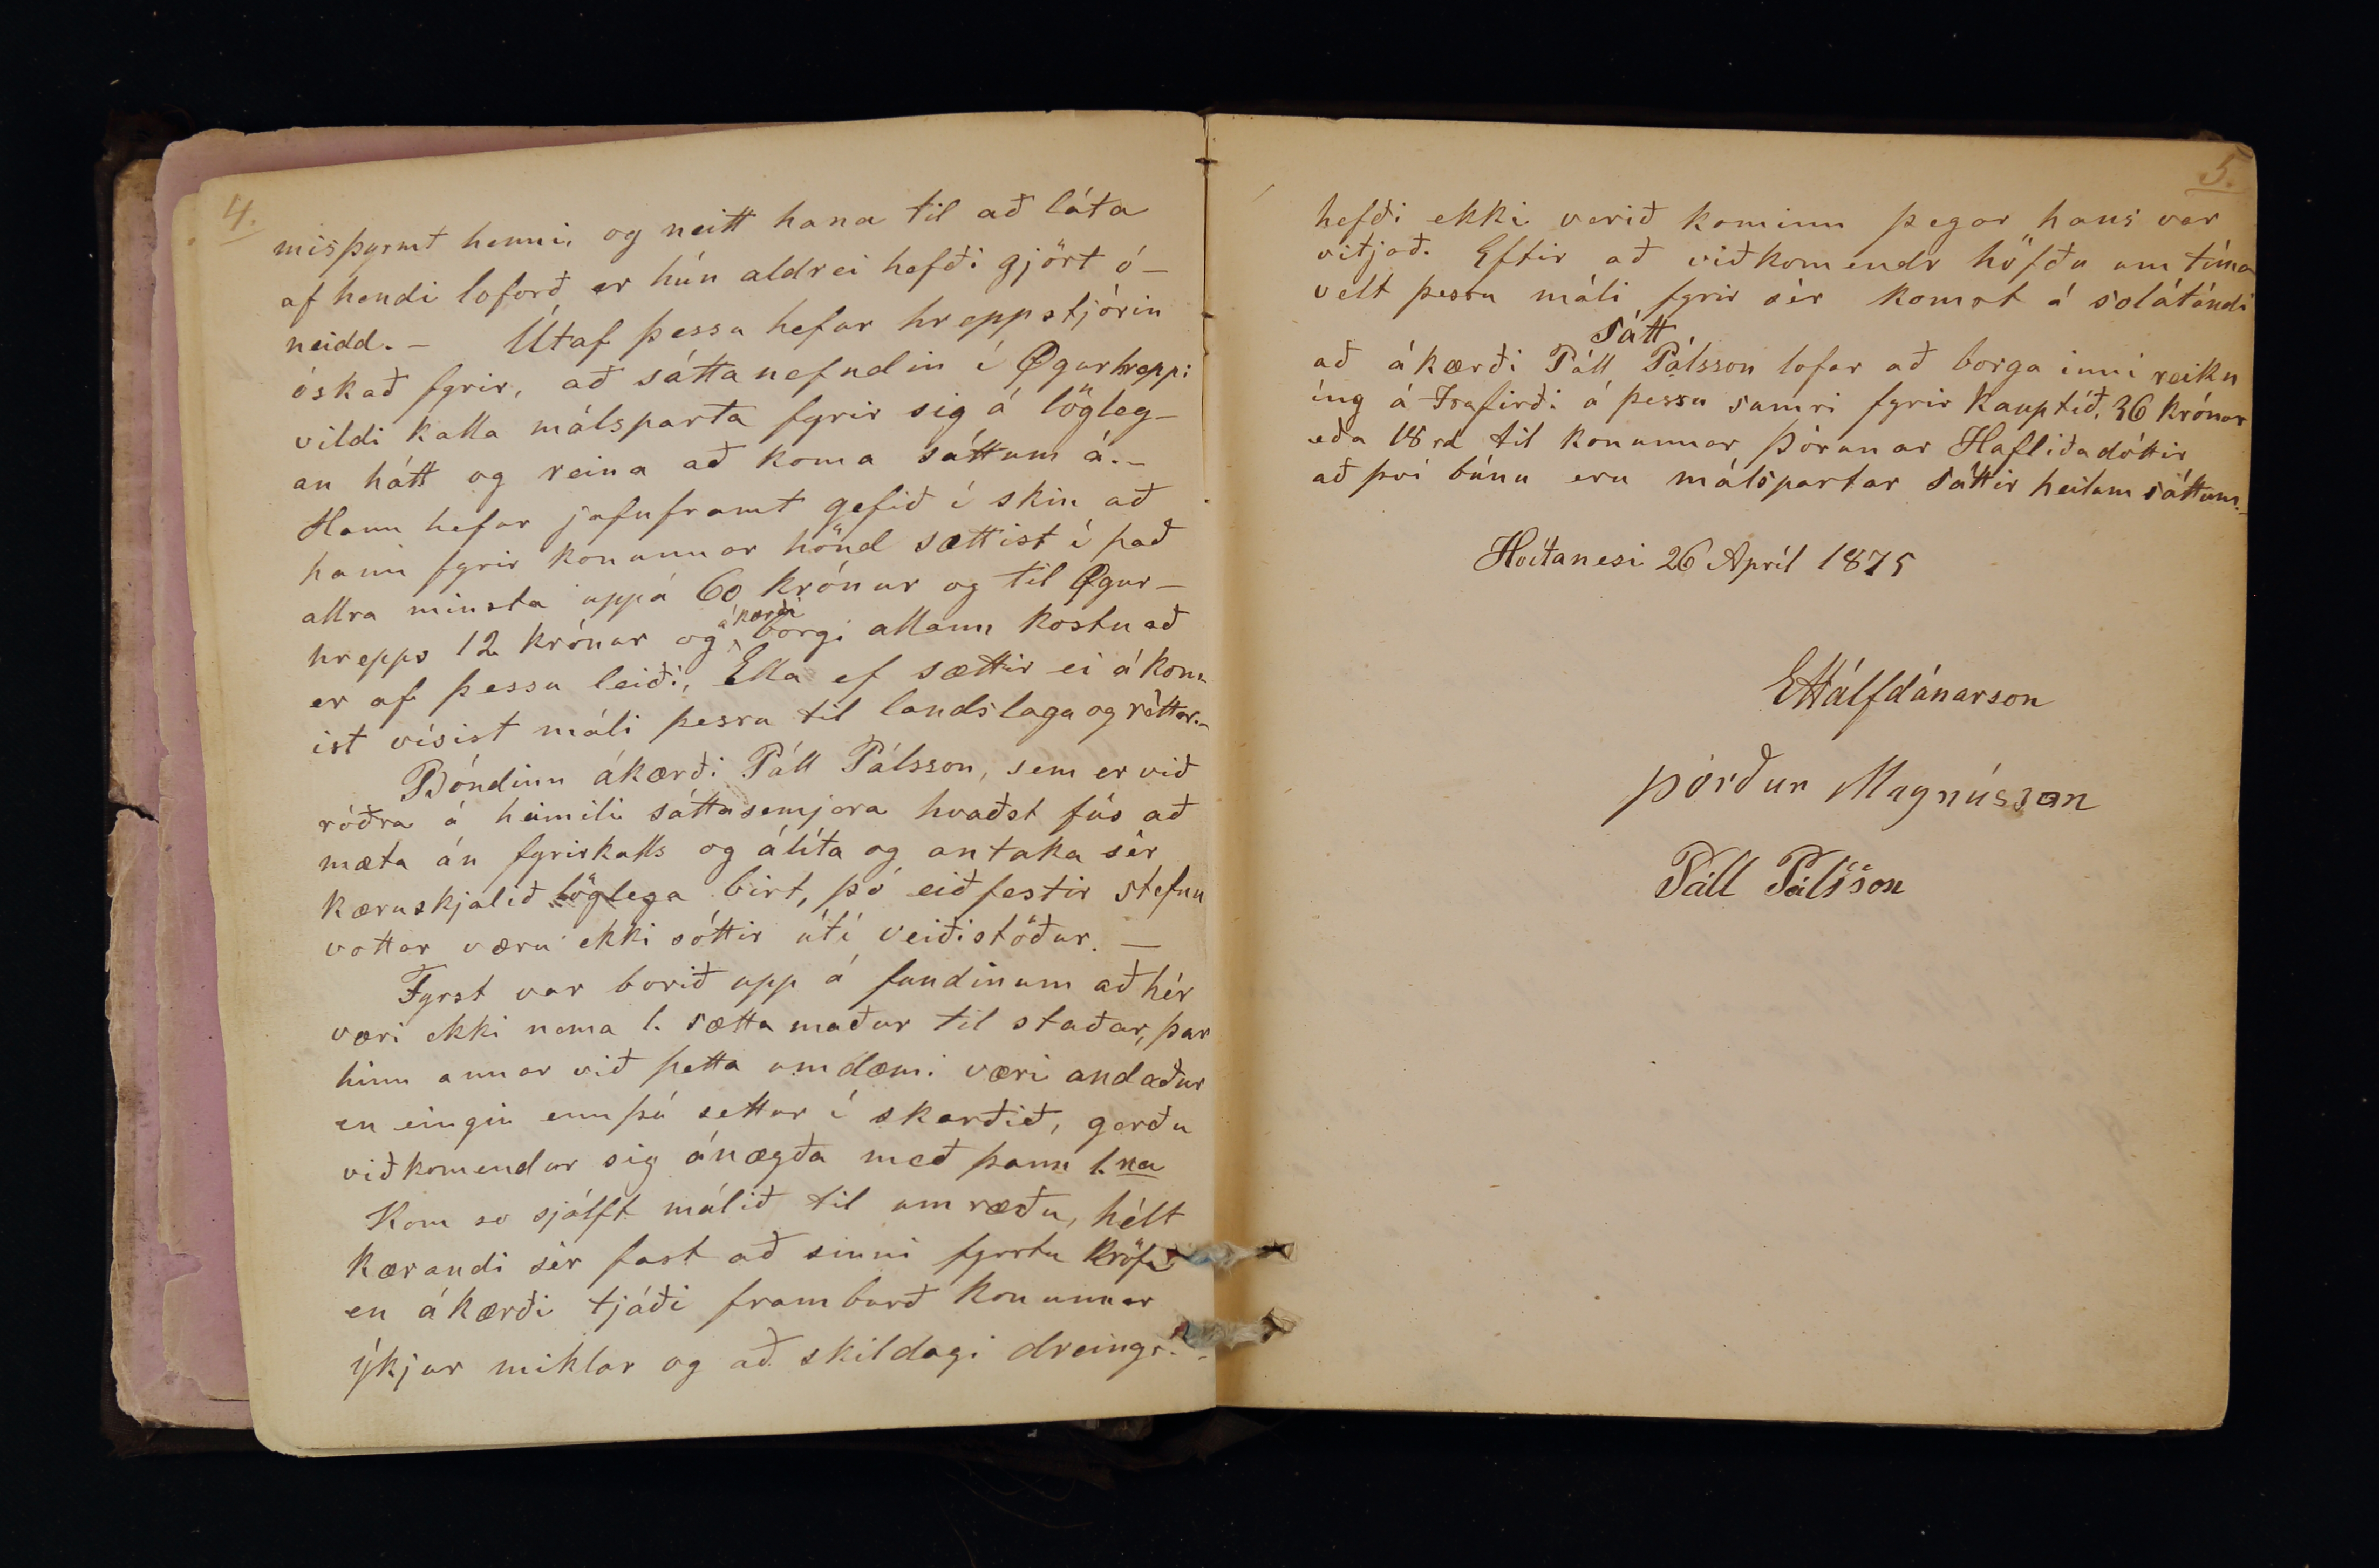 4.
misþyrmt henni, og neitt hana til að láta
af hendi loforð er hún aldrei hefði gjört ó-
neidd. – Útaf þessu hefur hreppstjórin
óskað fyrir, að sáttanefndin í Øgurhreppi
vildi kalla málsparta fyrir sig á lögleg-
an hátt og reina að koma sáttum á.-
Hann hefur jafnframt gefið í skin að
hann fyrir konunnar hönd sættist í það
allra minsta uppá 60 krónur og til Øgur-
hrepps 12 krónur og ákærði borgi allann kostnað
er af þessu leiði, Ella ef sættir ei á kom-
ist vísist máli þessu til landslaga og réttar.-
Bóndinn ákærði Páll Pálsson, sem er við
róðra á heimili sáttasemjara kvaðst fús að
mæta án fyrirkalls og álíta og antaka sér
kæruskjalið löglega birt, þó eiðfestir stefnu
vottar væru ekki sóttir útí veiðistöður. —
Fyrst var borið upp á fundinum að hér
væri ekki nema 1. sættamaður til staðar, þar
hinn annar við þetta umdæmi væri andaður
en eingin ennþá settur í skarðið, gerðu
viðkomendur sig ánægða með þann 1.na
Kom so sjálft málið til umræðu, hélt
kærandi sér fast að sinni fyrstu kröfu
en ákærði tjáði framburð konunnar
ýkjur miklar og að skildagi dreings.-
5.
hefði ekki verið kominn þegar hans var
vitjað. Eftir að viðkomendr höfðu um tíma
velt þessu máli fyrir sér komst á solátandi
Sátt
að ákærði Páll Pálsson lofar að borga inní reikn
íng á Isafirði á þessu sumri fyrir kauptíð, 36 krónur
eða 18 rd til konunnar Þórunar Hafliðadóttir
að því búnu eru málspartar sáttir heilum sáttum.-
Hvítanesi 26 Apríl 1875
EHálfdánarson
Þórður Magnússon
Páll Pálsson